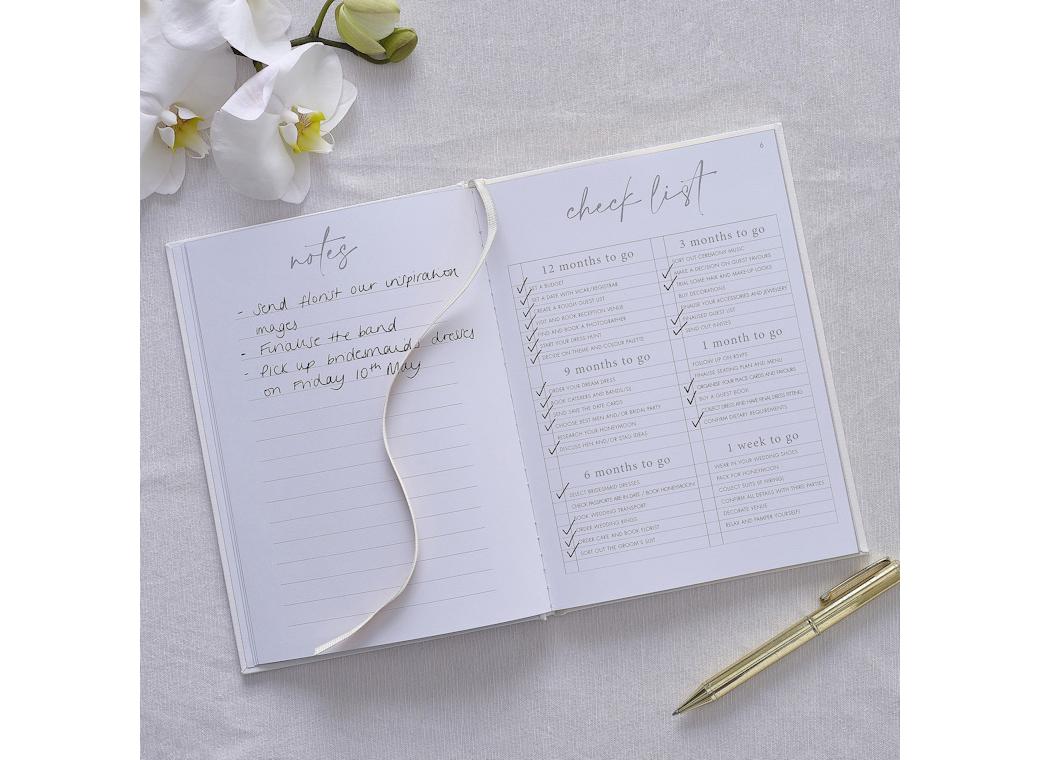 notes
- Send florist our inspiration
images
- Finalise the band
- Pick up bridesmaids dresses
on Friday 10th May
6
check list
12 months to go
SET A BUDGET
SET A DATE WITH VICAR/REGISTRAR
CREATE A ROUGH GUEST LIST
VISIT AND BOOK RECEPTION VENUE
FIND AND BOOK A PHOTOGRAPHER
START YOUR DRESS HUNT
DECIDE ON THEME AND COLOUR PALETTE
9 months to go
ORDER YOUR DREAM DRESS
BOOK CATERERS AND BANDS/DJ
SEND SAVE THE DATE CARDS
CHOOSE BEST MEN AND/OR BRIDAL PARTY
RESEARCH YOUR HONEYMOON
DISCUSS HEN AND/OR STAG IDEAS
6 months to go
SELECT BRIDESMAID DRESSES
CHECK PASSPORTS ARE IN DATE / BOOK HONEYMOON
BOOK WEDDING TRANSPORT
ORDER WEDDING RINGS
ORDER CAKE AND BOOK FLORIST
SORT OUT THE GROOM'S SUIT
3 months to go
SORT OUT CEREMONY MUSIC
MAKE A DECISION ON GUEST FAVOURS
TRIAL SOME HAIR AND MAKE-UP LOOKS
BUY DECORATIONS
FINALISE YOUR ACCESSORIES AND JEWELLERY
FINALISED GUEST LIST
SEND OUT INVITES
1 month to go
FOLLOW UP ON RSVPS
FINALISE SEATING PLAN AND MENU
ORGANISE YOUR PLACE CARDS AND FAVOURS
BUY A GUEST BOOK
COLLECT DRESS AND HAVE FINAL DRESS FITTING
CONFIRM DIETARY REQUIREMENTS
1 week to go
WEAR IN YOUR WEDDING SHOES
PACK FOR HONEYMOON
COLLECT SUITS IF HIRING
CONFIRM ALL DETAILS WITH THIRD PARTIES
DECORATE VENUE
RELAX AND PAMPER YOURSELF